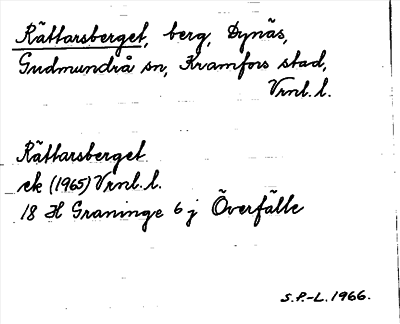 Rättarsberget, berg, Dynäs,
Gudmundrå sn, Kramfors stad,
Vrnl. l.
Rättarsberget
ek (1965) Vrnl. l.
18 H Graninge 6 j Överfälle
S.P.-L. 1966.